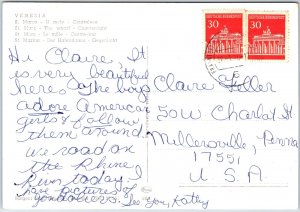 VENEZIA
S. Marco - Il molo - Gondoliere
St. Marc - The wharf - Gondoliere
St. Marc - Le môle
St. Markus - Der Hafendamm
30
30
DEUTSCHE BUNDESPOST
DEUTSCHE BUNDESPOST
Hi Claire, It
is very beautiful
here & the boys
adore American
girls & follow
them around.
We road on
the Rhine
River today. I
have pictures of
gondoliers. See You, Kathy
Claire Zeller
50W Charlot St
Millersville, Penna
17551
U S A